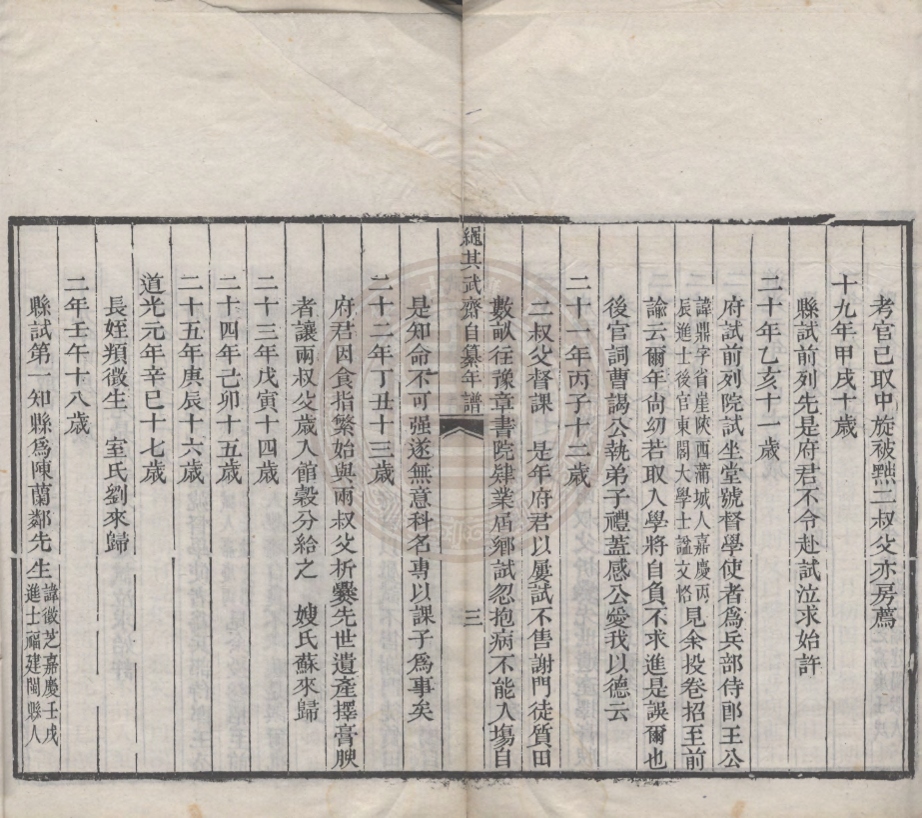 考官已取中旋被黜二叔父亦房薦
十九年甲戌十歲
縣試前列先是府君不令赴試泣求始許
二十年乙亥十一歲
府試前列院試坐堂號督學使者爲兵部侍郎王公
諱鼎字省崖陝西蒲城人嘉慶丙
辰進士後官東閣大學士諡文恪
見余投卷招至前
諭云爾年尙幼若取入學將自負不求進是誤爾也
後官詞曹謁公執弟子禮蓋感公愛我以德云
二十一年丙子十二歲
二叔父督課 是年府君以屢試不售謝門徒質田
數畝往豫章書院肄業屆鄉試忽抱病不能入場自
繩其武齋自纂年譜
三
是知命不可强遂無意科名專以課子爲事矣
二十二年丁丑十三歲
府君因食指繁始與兩叔父析爨先世遺產擇膏腴
者讓兩叔父歲入館穀分給之 嫂氏蘇來歸
二十三年戊寅十四歲
二十四年己卯十五歲
二十五年庚辰十六歲
道光元年辛巳十七歲
長姪㩔徵生 室氏劉來歸
二年壬午十八歲
縣試第一知縣爲陳蘭鄰先生
諱徵芝嘉慶壬戌
進士福建閩縣人